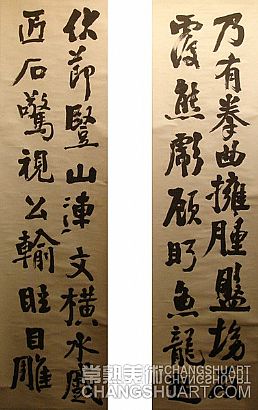 乃有拳曲擁腫盤坳
覆熊彪顧盼魚龍
伏節豎山連文橫水蹙
匠石驚視公輸眩目雕
常熟美術 CHANGSHUART